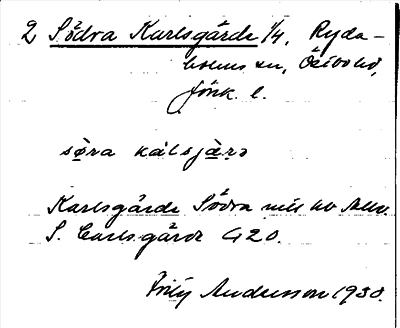 2 Södra Karlsgärde 1/4, Ryda-
holms sn, Östbo hd,
Jönk. l.
sø̀ra kálsjæ̀rə
Karlsgärde Södra
S. Carlsgärde G20.
Andersson 1930.